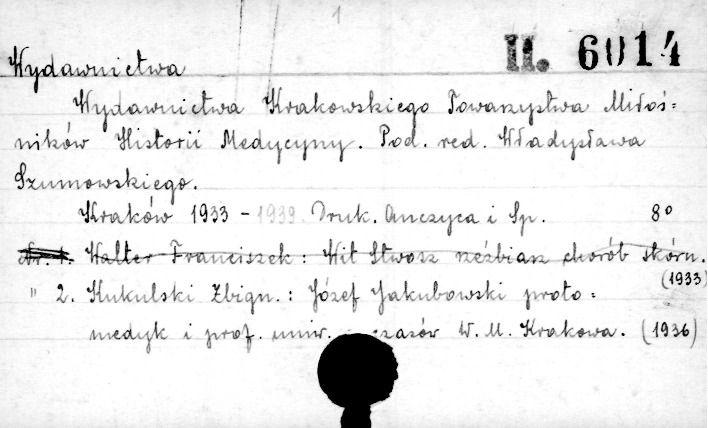 1
II. 6014
Wydawnictwa
Wydawnictwa Krakowskiego Towarzystwa Miłoś=
ników Historii Medycyny. Pod. red. Władysława
Szumowskiego.
Kraków 1933 - 1939. Druk. Anczyca i Sp. 8º
Nr. 1. Walter Franciszek: Wit Stwosz rzeźbiarz chorób skórn.
(1933)
" 2. Kukulski Zbign.: Józef Jakubowski proto=
medyk i prof. uniw. czasów W. M. Krakowa. (1936)